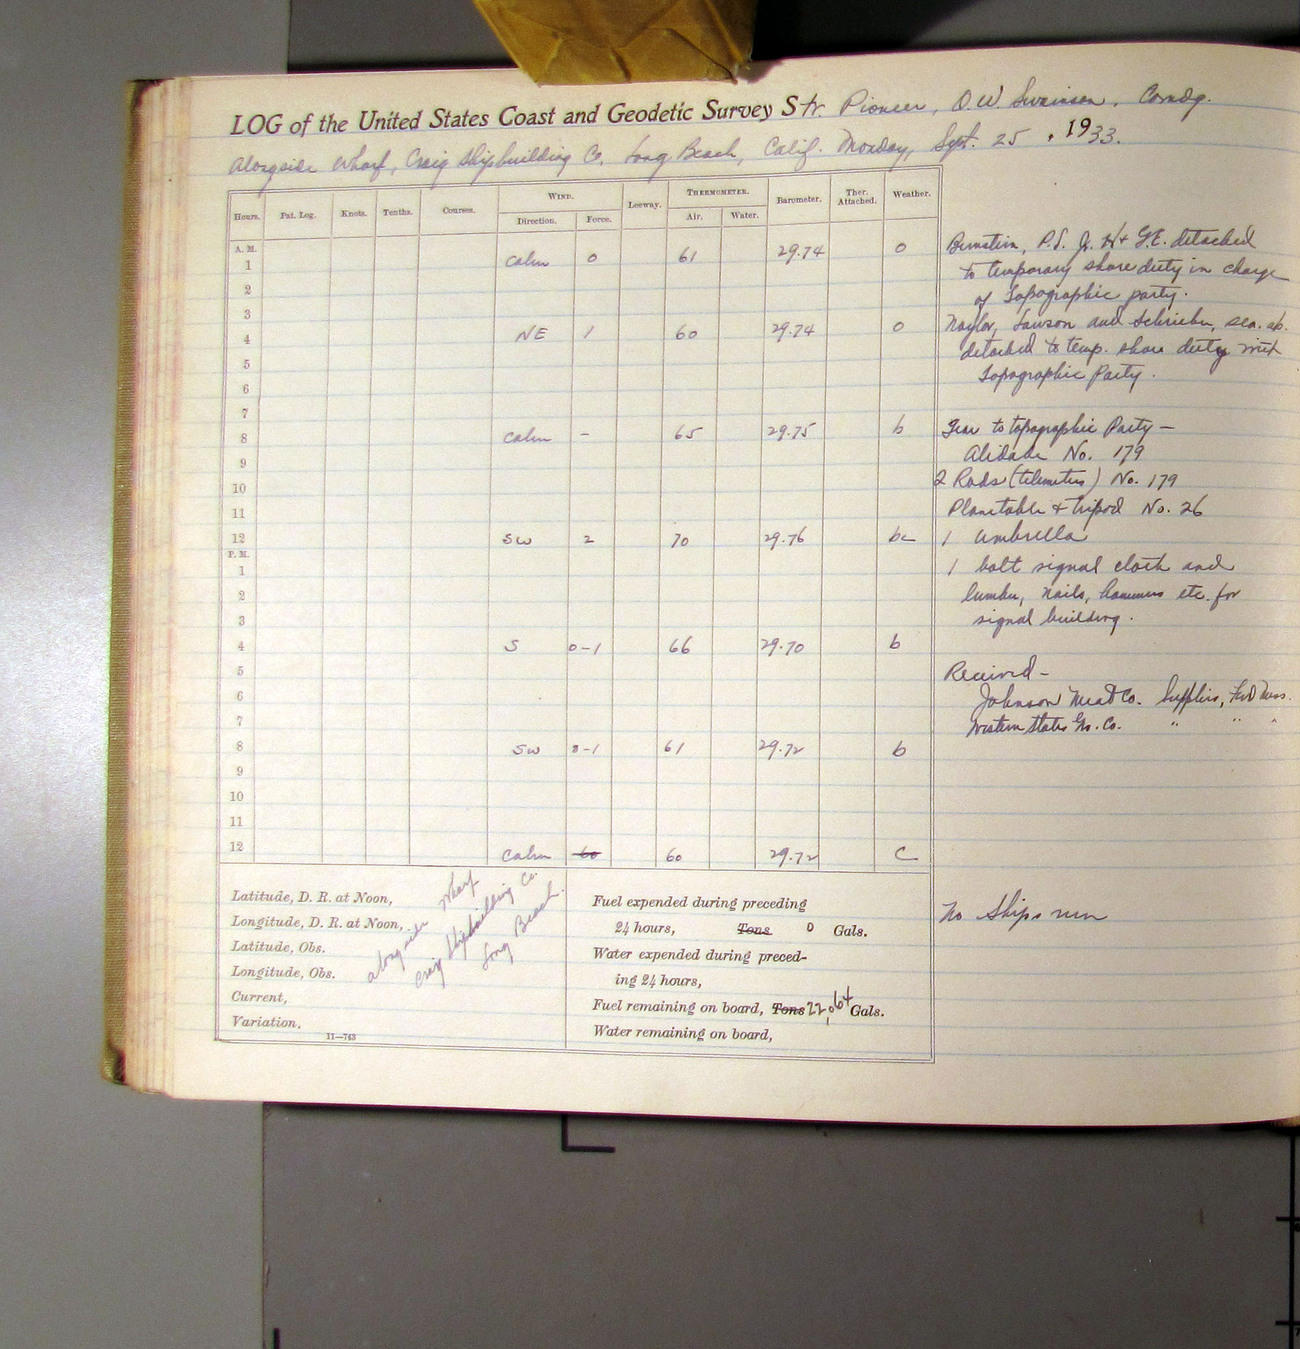 LOG of the United States Coast and Geodetic Survey Str. Pioneer, O.W. Swainson, Comdg.
Alongside Wharf, Craig Shipbuilding Co. Long Beach, Calif. Monday, Sept. 25, 1933.
Hours. Pat. Log. Knots. Tenths. Courses. WIND. Direction. Force. Leeway. THERMOMETER. Air. Water. Barometer. Ther. Attached. Weather.
A. M.
1 Calm 0 61 29.74 o
2
3
4 NE 1 60 29.74 o
5
6
7
8 Calm - 65 29.75 b
9
10
11
12 SW 2 70 29.76 bc
P. M.
1
2
3
4 S 0-1 66 29.70 b
5
6
7
8 SW 0-1 61 29.72 b
9
10
11
12 Calm 60 60 29.72 C
Bernstein, P.S. Jr. H+ G.E. detached
to temporary shore duty in charge
of Topographic party.
Naylor, Lawson and Schrieber, sea. ab.
detached to temp. shore duty with
Topographic Party.
Gear to topographic Party -
Alidade No. 179
2 Rods (telemeters) No. 179
Planetable & tripod No. 26
1 Umbrella
1 bolt signal cloth and
lumber, nails, hammers etc. for
signal building.
Received -
Johnson Meat Co. Supplies, Mess.
Western States Gro. Co. " " "
Latitude, D. R. at Noon,
Longitude, D. R. at Noon,
Latitude, Obs.
Longitude, Obs.
Current,
Variation,
11—763
alongside wharf
Craig Shipbuilding Co.
Long Beach.
Fuel expended during preceding
24 hours, Tons 0 Gals.
Water expended during preced-
ing 24 hours,
Fuel remaining on board, Tons 22,064 Gals.
Water remaining on board,
No Ships run